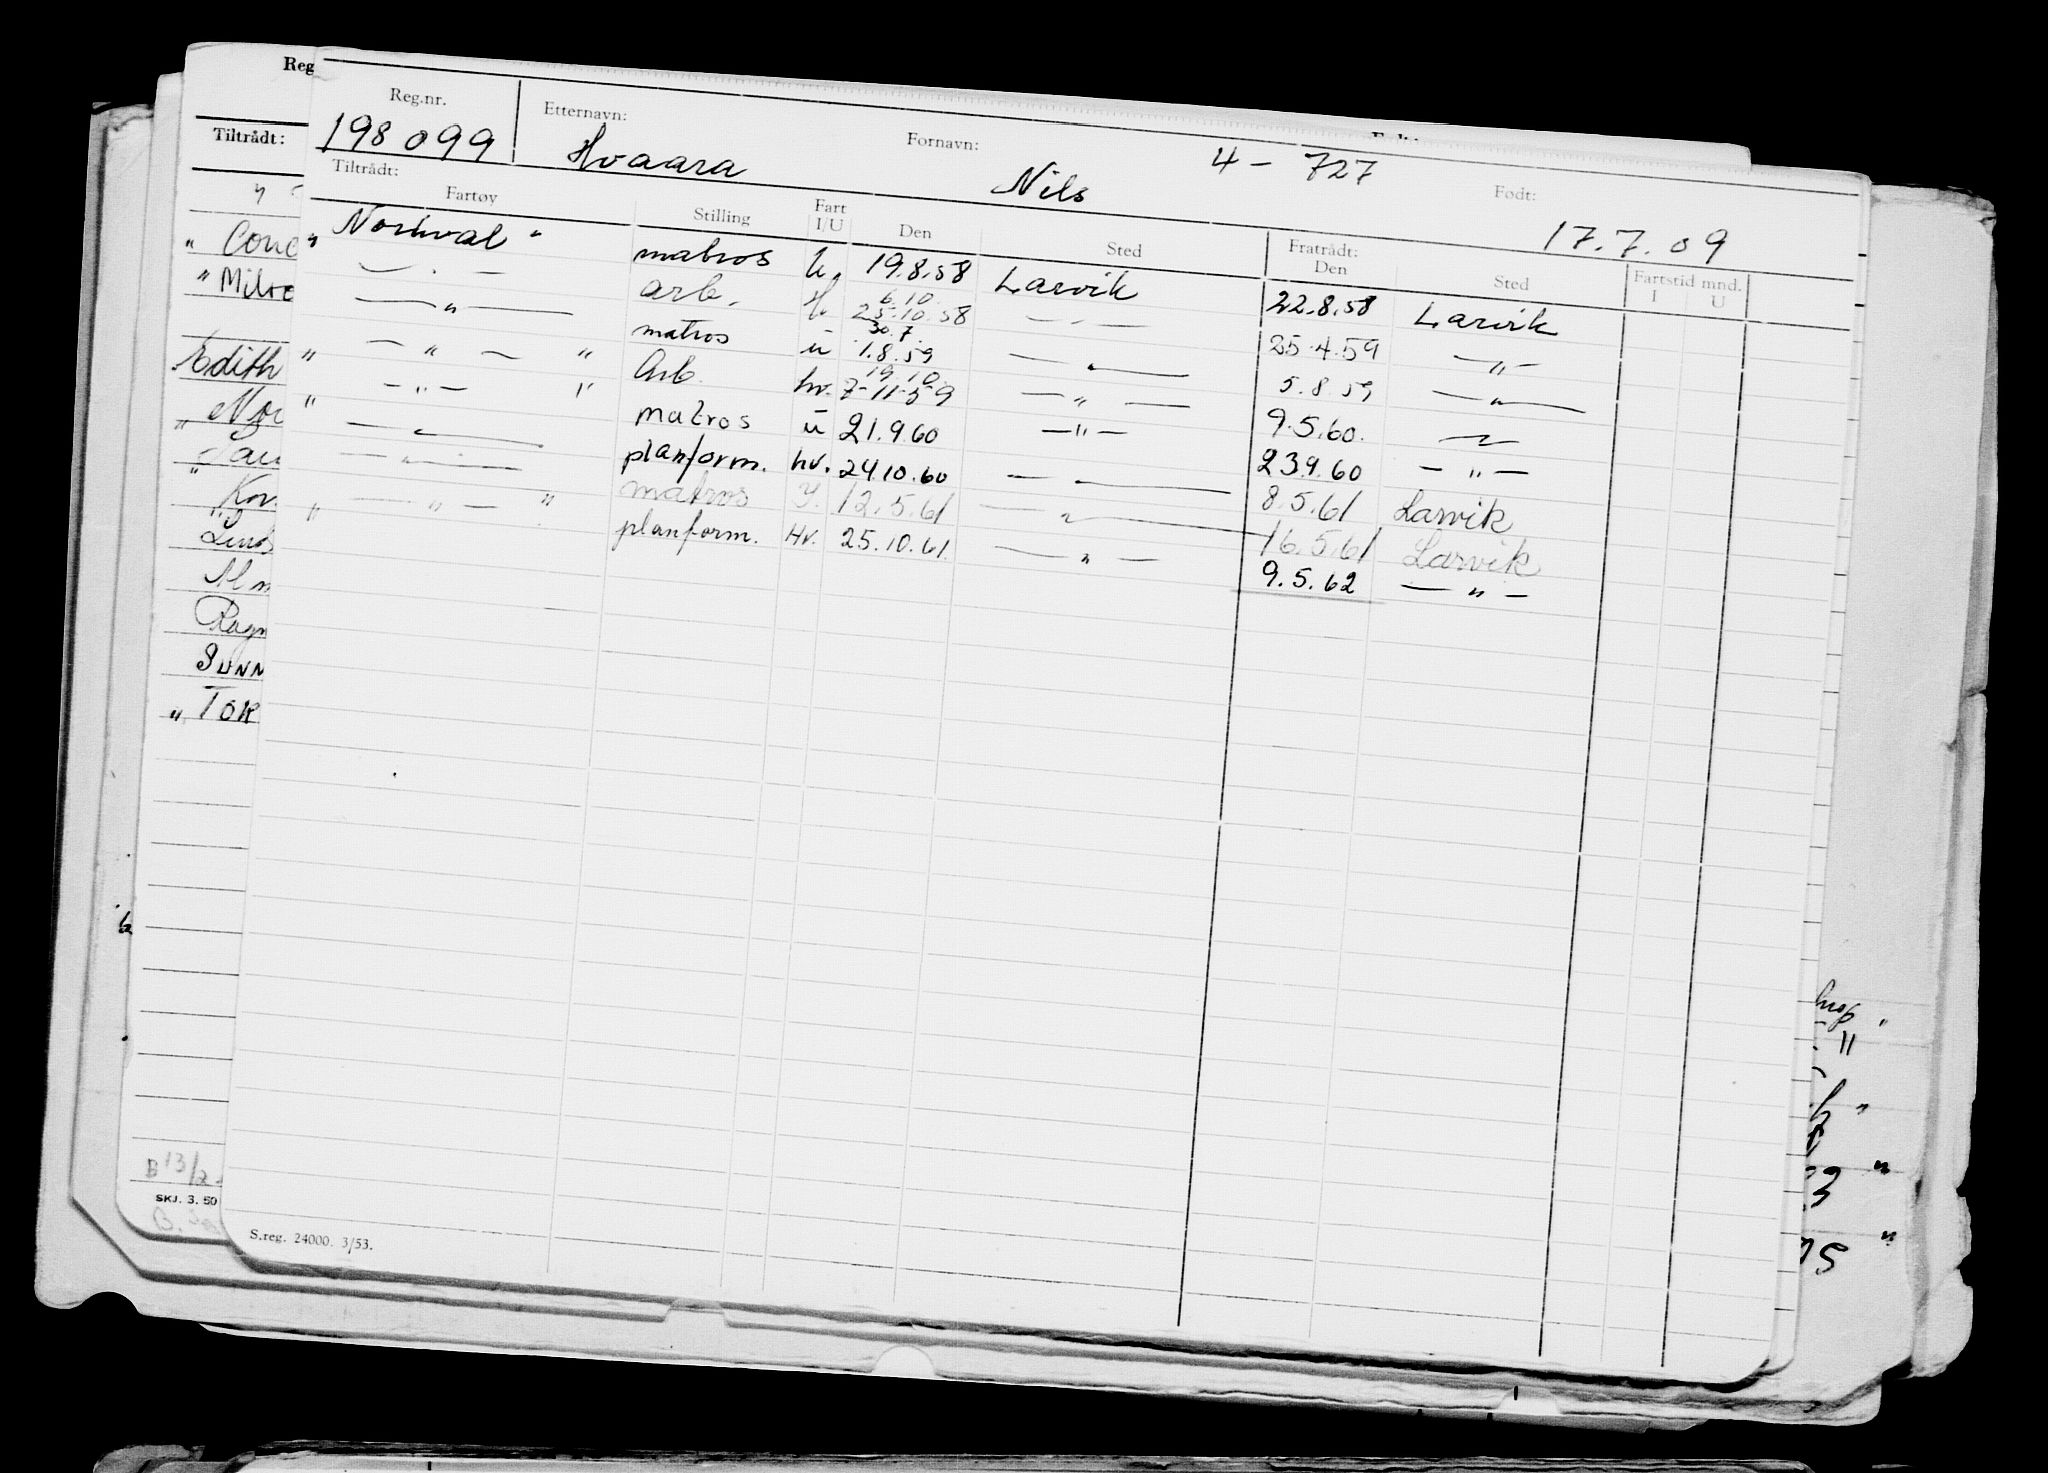 Reg
Tiltrådt:
" Conc
" Milro
Edith
" Nor
" Kor
" Lind
Alm
Ragn
Sunn
" Tor
B 13/2
SKJ. 3. 50
Reg.nr. Etternavn: Fornavn: 4 - 727 Født:
198 099 Hvaara Nils 17.7.09
Tiltrådt: Fratrådt:
Fartøy Stilling Fart I/U Den Sted Den Sted Fartstid mnd. I U
" Norhval " matros U. 19.8.58 Larvik 22.8.58 Larvik
— . — arb. H. 6.10. 25.10.58 — " — 25.4.59 — " —
— " — matros u 30.7. 1.8.59 — " — 5.8.59 — " —
" — " — " Arb. hv. 19.10. 7-11-59 — " — 9.5.60. — " —
" — " — " matros u 21.9.60 — " — 23.9.60 — " —
— " — planform. hv. 24.10.60 — " — 8.5.61 Larvik
— " — matros 12.5.61 — " — 16.5.61 Larvik
" — " — " planform. Hv. 25.10.61. — " — 9.5.62 — " —
S.reg. 24000. 3/53.